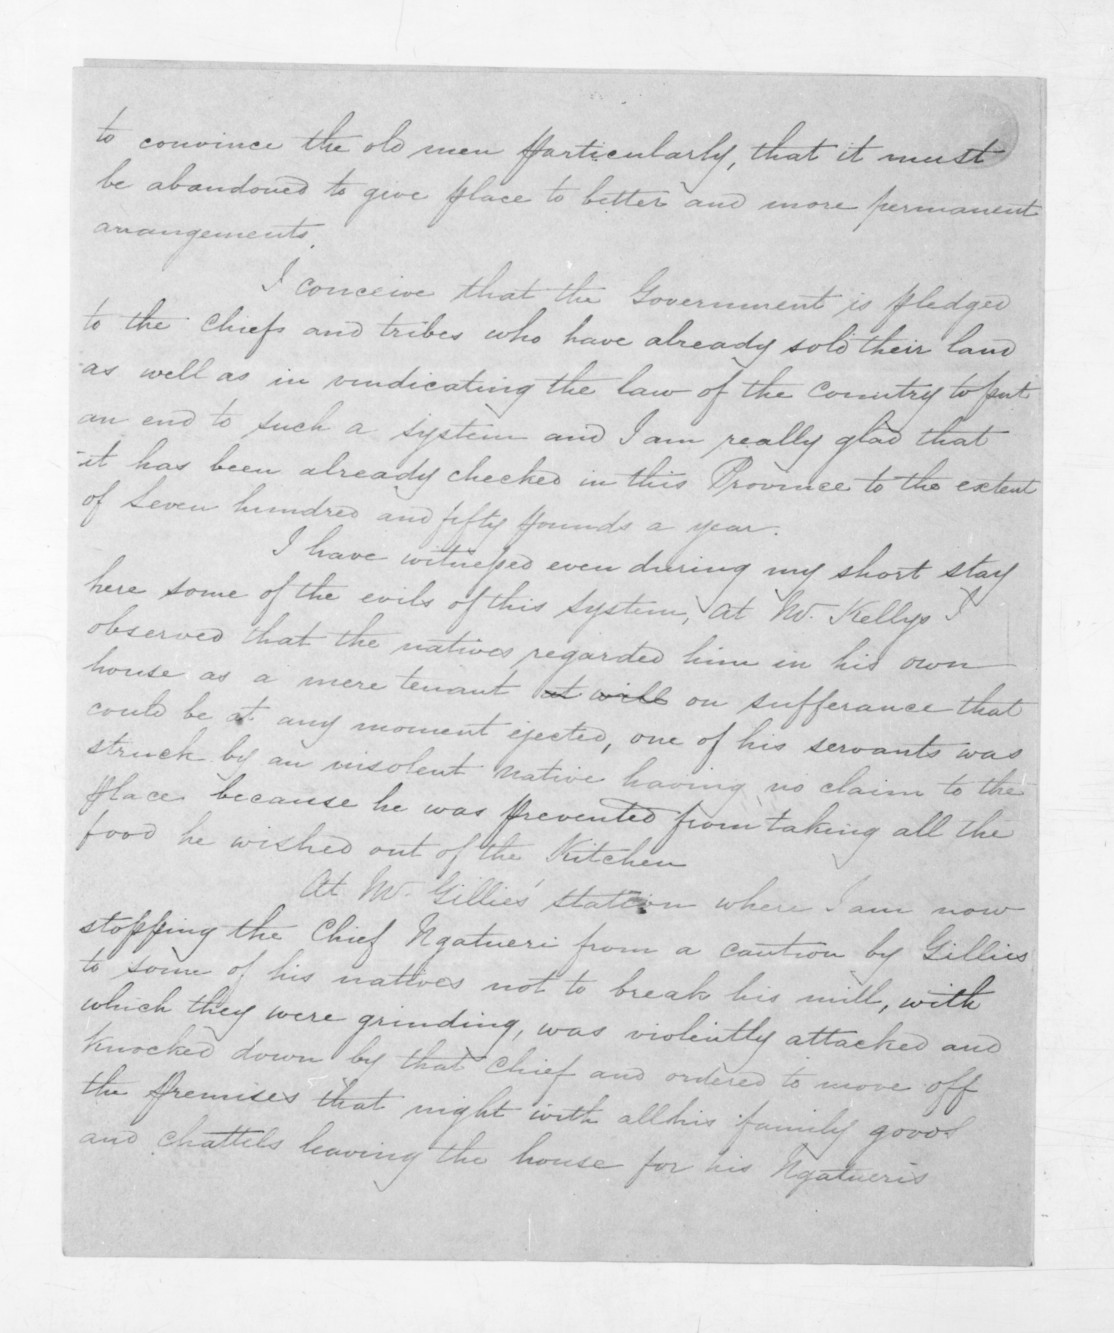 to convince the old men particularly, that it must
be abandoned to give place to better and more permanent
arrangements.
I conceive that the Government is pledged
to the Chiefs and tribes who have already sold their land
as well as in vindicating the law of the Country to put
an end to such a system and I am really glad that
it has been already checked in this Province to the extent
of Seven hundred and fifty pounds a year.
I have witnessed even during my short stay
here some of the evils of this system, At Mr. Kellys I
observed that the natives regarded him in his own
house as a mere tenant at will on sufferance that
could be at any moment ejected, one of his servants was
struck by an insolent native having no claim to the
place because he was prevented from taking all the
food he wished out of the Kitchen
At Mr. Gillies' station where I am now
stopping the Chief Ngatueri from a caution by Gillies
to some of his natives not to break his mill, with
which they were grinding, was violently attacked and
knocked down by that Chief and ordered to move off
the premises that night with all his family goods
and chattels leaving the house for his Ngatueris